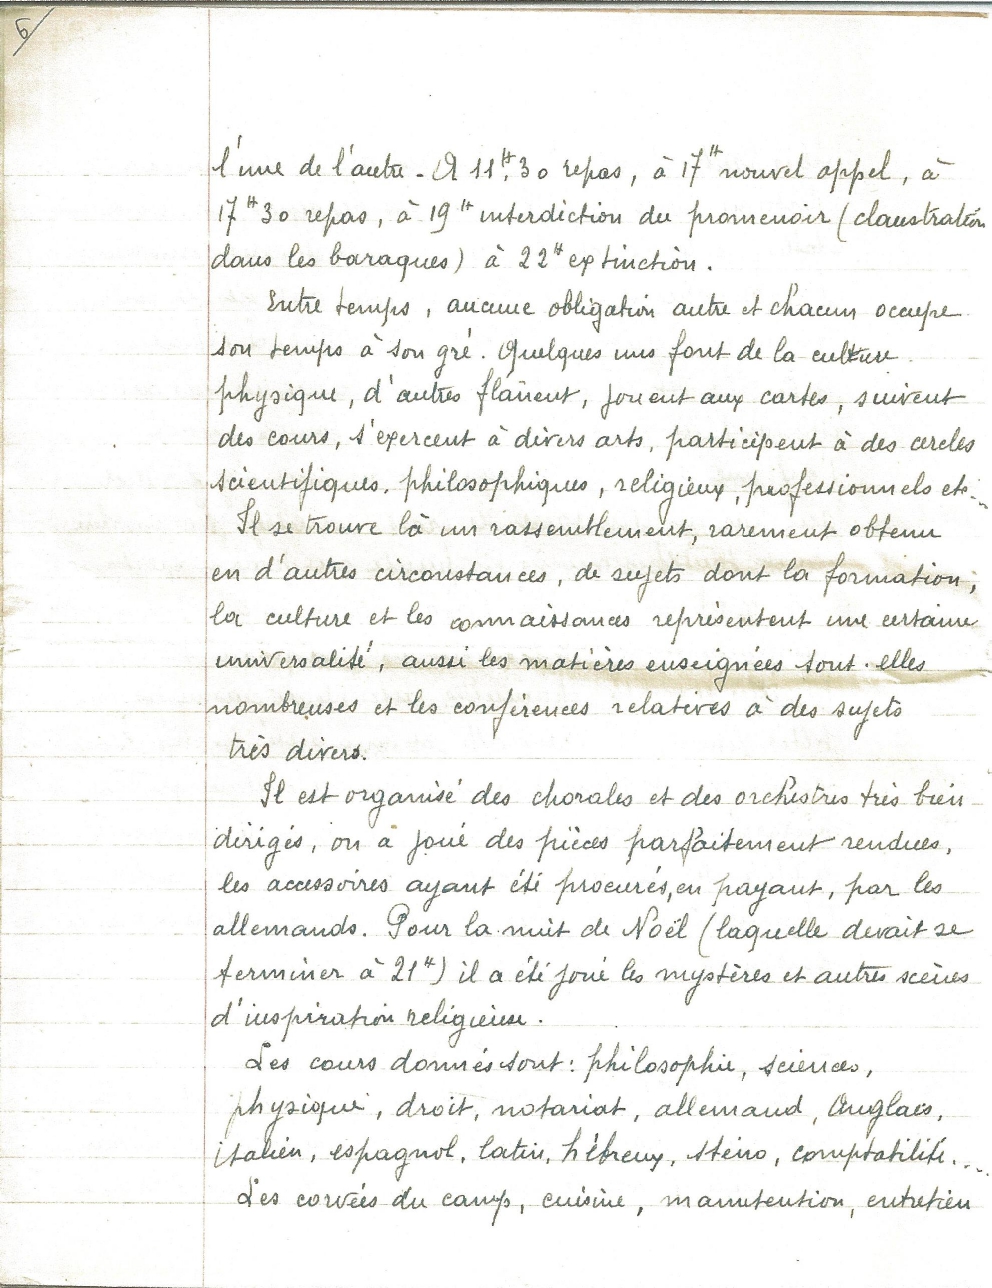 6
l'une de l'autre - A 11H,30 repas, à 17H nouvel appel, à
17H30 repas, à 19H interdiction du promenoir (claustration
dans les baraques) à 22H extinction.
Entre temps, aucune obligation autre et chacun occupe
son temps à son gré. Quelques uns font de la culture
physique, d'autres flânent, jouent aux cartes, suivent
des cours, s'exercent à divers arts, participent à des cercles
scientifiques, philosophiques, religieux, professionnels etc...
Il se trouve là un rassemblement, rarement obtenu
en d'autres circonstances, de sujets dont la formation,
la culture et les connaissances représentent une certaine
universalité, aussi les matières enseignées sont-elles
nombreuses et les conférences relatives à des sujets
très divers.
Il est organisé des chorales et des orchestres très bien
dirigés, on a joué des pièces parfaitement rendues,
les accessoires ayant été procurés, en payant, par les
allemands. Pour la nuit de Noël (laquelle devait se
terminer à 21H) il a été joué les mystères et autres scènes
d'inspiration religieuse.
Les cours donnés sont : philosophie, sciences,
physique, droit, notariat, allemand, Anglais,
italien, espagnol, latin, hébreux, sténo, comptabilité...
Les corvées du camp, cuisine, manutention, entretien